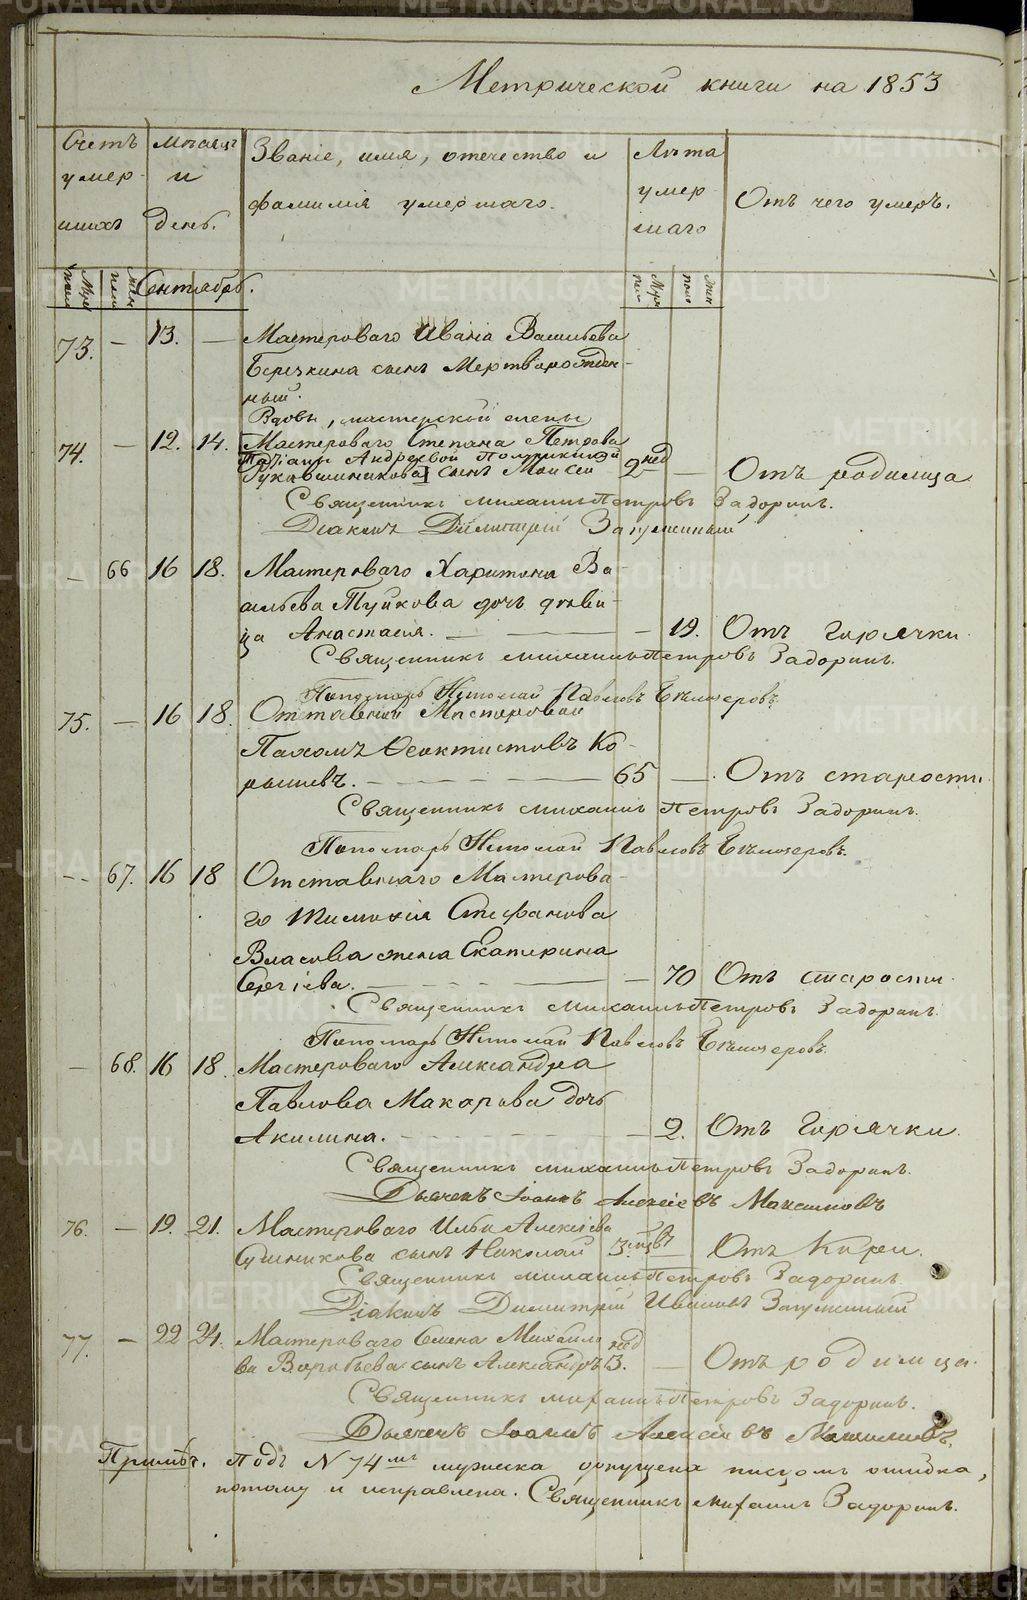 Метрической книги на 1853
Счетъ умер- шихъ
Мѣсяцъ и день.
Званіе, имя, отечество и фамилія умершаго.
Лѣта умер шаго
Отъ чего умеръ.
Сентябрь.
73. — 13. — Мастероваго Ивана Васильева
сынъ Мертворожден-
ный.
Вдовы, мастерской
74. — 12. 14. Мастероваго Степана Петрова
Андреевой
сынъ Моисей 2 нед — Отъ родимца
Священникъ Михаилъ Петровъ Задоринъ.
Діаконъ Димитрій
— 66 16 18. Мастероваго Харитона Ва-
сильева Туйкова дочь дѣви-
ца Анастасія. — — 19. Отъ горячки.
Священникъ Михаилъ Петровъ Задоринъ.
Пономарь Николай Павловъ Бѣлозеровъ.
75. — 16 18. Отставной Мастеровой
Пахомъ Ѳеоктистовъ Ко-
— 65 — Отъ старости.
Священникъ Михаилъ Петровъ Задоринъ.
Пономарь Николай Павловъ Бѣлозеровъ.
— 67. 16 18 Отставнаго Мастерова-
го Тимоѳея Стефанова
Власова жена Екатерина
Сергіева. — — 70 Отъ старости.
Священникъ Михаилъ Петровъ Задоринъ.
Пономарь Николай Павловъ Бѣлозеровъ.
— 68. 16 18. Мастероваго Александра
Павлова Макарова дочь
Акилина. — — 2. Отъ Горячки.
Священникъ Михаилъ Петровъ Задоринъ.
Дьячекъ Іоаннъ Алексіевъ Максимовъ
76. — 19. 21. Мастероваго Ильи Алексіева
сынъ Николай 3. — Отъ Кори.
Священникъ Михаилъ Петровъ Задоринъ.
Діаконъ Димитрій Ивановъ
77. — 22 24. Мастероваго Семена Михайло
ва Воробьева сынъ Александръ 3. нед — Отъ родимца.
Священникъ Михаилъ Петровъ Задоринъ.
Дьячекъ Іоаннъ Алексіевъ Максимовъ.
Примѣч. Подъ N 74мъ мужеска допущена писцомъ ошибка,
потому и исправлена. Священникъ Михаилъ Задоринъ.
METRIKI.GASO-URAL.RU